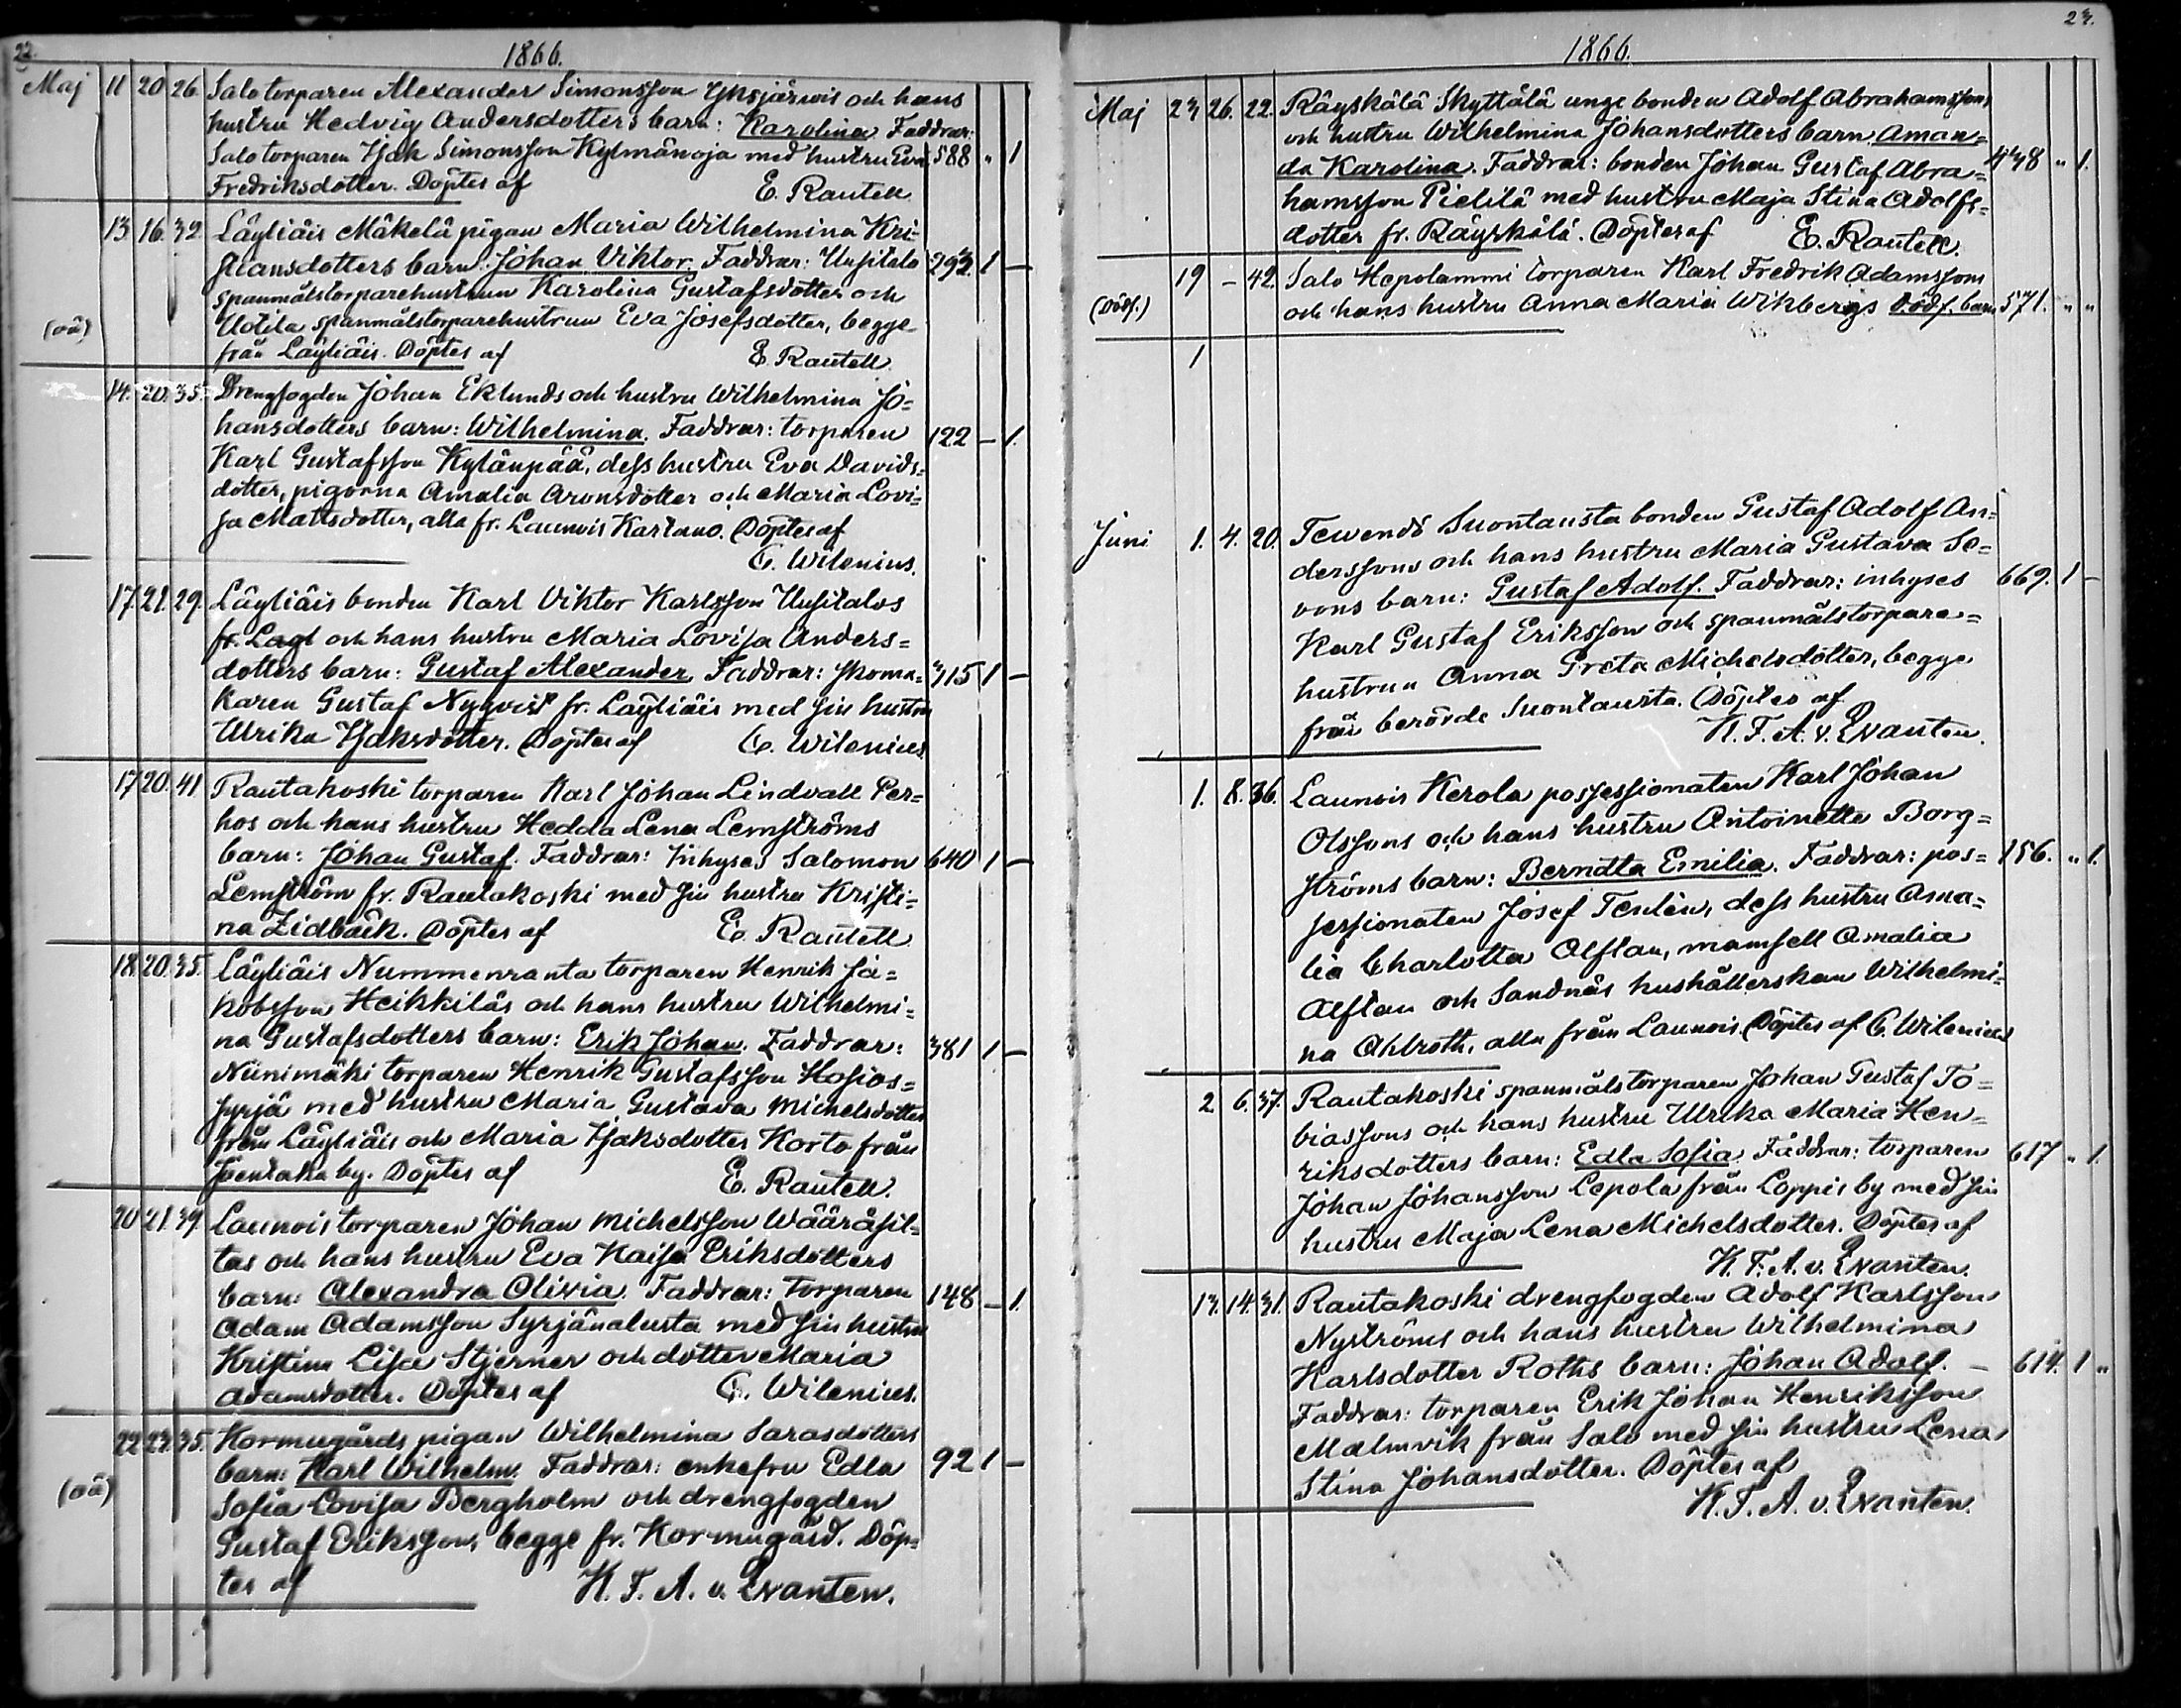 22.
1866.
Maj 11 20 26. Salo torparen Alexander Simonsson Yksjärwis och hans
hustru Hedvig Andersdotters barn: Karolina Faddrar:
Salo torparen Isak Simonsson Kylmänoja med hustru Eva 588 " 1
Fredriksdotter. Döptes af E. Rautell
13. 16. 32. Läyliäis Mäkelä pigan Maria Wilhelmina Kri-
stiansdotters barn: Johan Viktor. Faddrar: Uusitalo 292. 1 –
spanmålstorparehustrun Karolina Gustafsdotter och
Uotila spanmålstorparehustrun Eva Josefsdotter, begge
(oä) från Läyliäis. Döptes af E Rautell
14. 20. 35. Drengfogden Johan Eklunds och hustru Wilhelmina Jo=
hansdotters barn: Wilhelmina. Faddrar: torparen 122 – 1.
Karl Gustafsson Kylänpää, dess hustru Eva Davids=
dotter, pigorna Amalia Aronsdotter och Maria Lovi=
sa Mattsdotter, alla fr. Launois Kartano. Döptes af
C. Wilenius.
17. 21. 29. Läyliäis bonden Karl Viktor Karlsson Uusitalos
fr. Lagl och hans hustru Maria Lovisa Anders=
dotters barn: Gustaf Alexander. Faddrar: skoma= 315 1 –
karen Gustaf Nyqvist fr. Läyliäis med sin hustru
Ulrika Isaksdotter. Döptes af C. Wilenius
17 20. 41 Rautakoski torparen Karl Johan Lindvall Per=
hos och hans hustru Hedda Lena Lemströms
barn: Johan Gustaf. Faddrar: Inhyses Salomon 640 1 –
Lemström fr. Rautakoski med sin hustru Kristi=
na Lidbäck. Döptes af E. Rautell
18. 20. 35. Läyliäis Nummenranta torparen Henrik Ja=
kobsson Heikkiläs och hans hustru Wilhelmi=
na Gustafsdotters barn: Erik Johan. Faddrar: 381 1 –
Niinimäki torparen Henrik Gustafsson Hosios=
syrjä med hustru Maria Gustava Michelsdotter
från Läyliäis och Maria Isaksdotter Korto från
Joentaka by. Döptes af E. Rautell.
20 21. 39. Launois torparen Johan Michelsson Wääräsil=
tas och hans hustru Eva Kaisa Eriksdotters
barn: Alexandra Olivia. Faddrar: Torparen 148 – 1.
Adam Adamsson Syrjänalusta med sin hustru
Kristina Lisa Stjerner och dotter Maria
Adamsdotter. Döptes af C. Wilenius.
22 23. 35. Kormugårds pigan Wilhelmina Sarasdotters
barn: Karl Wilhelm. Faddrar: enkefru Edla 92 1 –
(oä) Sofia Lovisa Bergholm och drengfogden
Gustaf Eriksson, begge fr. Kormugård. Döp=
tes af K. F. A. v. Qvanten.
23.
1866.
Maj 23 26. 22. Räyskälä Skyttälä unge bonden Adolf Abrahamssons
och hustru Wilhelmina Johansdotters barn Aman=
da Karolina. Faddrar: bonden Johan Gustaf Abra= 438 " 1.
hamsson Pietilä med hustru Maja Stina Adolfs=
dotter fr. Räyskälä. Döptes af E. Rautell.
19 – 42. Salo Hepolammi torparen Karl Fredrik Adamssons
(Dödf.) och hans hustru Anna Maria Wikbergs dödf. barn 571. " "
1
Juni 1. 4. 20. Tewendö Suontausta bonden Gustaf Adolf An=
derssons och hans hustru Maria Gustava Se=
vons barn: Gustaf Adolf. Faddrar: inhyses 669. 1 –
Karl Gustaf Eriksson och spanmålstorpare=
hustrun Anna Greta Michelsdotter, begge
från berörde Suontausta. Döptes af
K. F. A. v. Qvanten.
1. 8. 36. Launois Kerola possessionaten Karl Johan
Olssons och hans hustru Antoinette Borg=
ströms barn: Berndta Emilia. Faddrar: pos= 156. " 1.
sessionaten Josef Tenlén, dess hustru Ama=
lia Charlotta Alftan, mamsell Amalia
Alftan och Sandnäs hushållerskan Wilhelmi=
na Ahlroth, alla från Launois. Döptes af C. Wilenius
2 6. 37. Rautakoski spanmålstorparen Johan Gustaf To=
biassons och hans hustru Ulrika Maria Hen=
riksdotters barn: Edla Sofia. Faddrar: torparen 617 " 1.
Johan Johansson Lepola från Loppis by med sin
hustru Maja Lena Michelsdotter. Döptes af
K. F. A. v. Qvanten.
13. 14. 31. Rautakoski drengfogden Adolf Karlsson
Nyströms och hans hustru Wilhelmina
Karlsdotter Roths barn: Johan Adolf. – 614. 1 "
Faddrar: torparen Erik Johan Henriksson
Malmvik från Salo med sin hustru Lena
Stina Johansdotter. Döptes af
K. F. A. v. Qvanten.